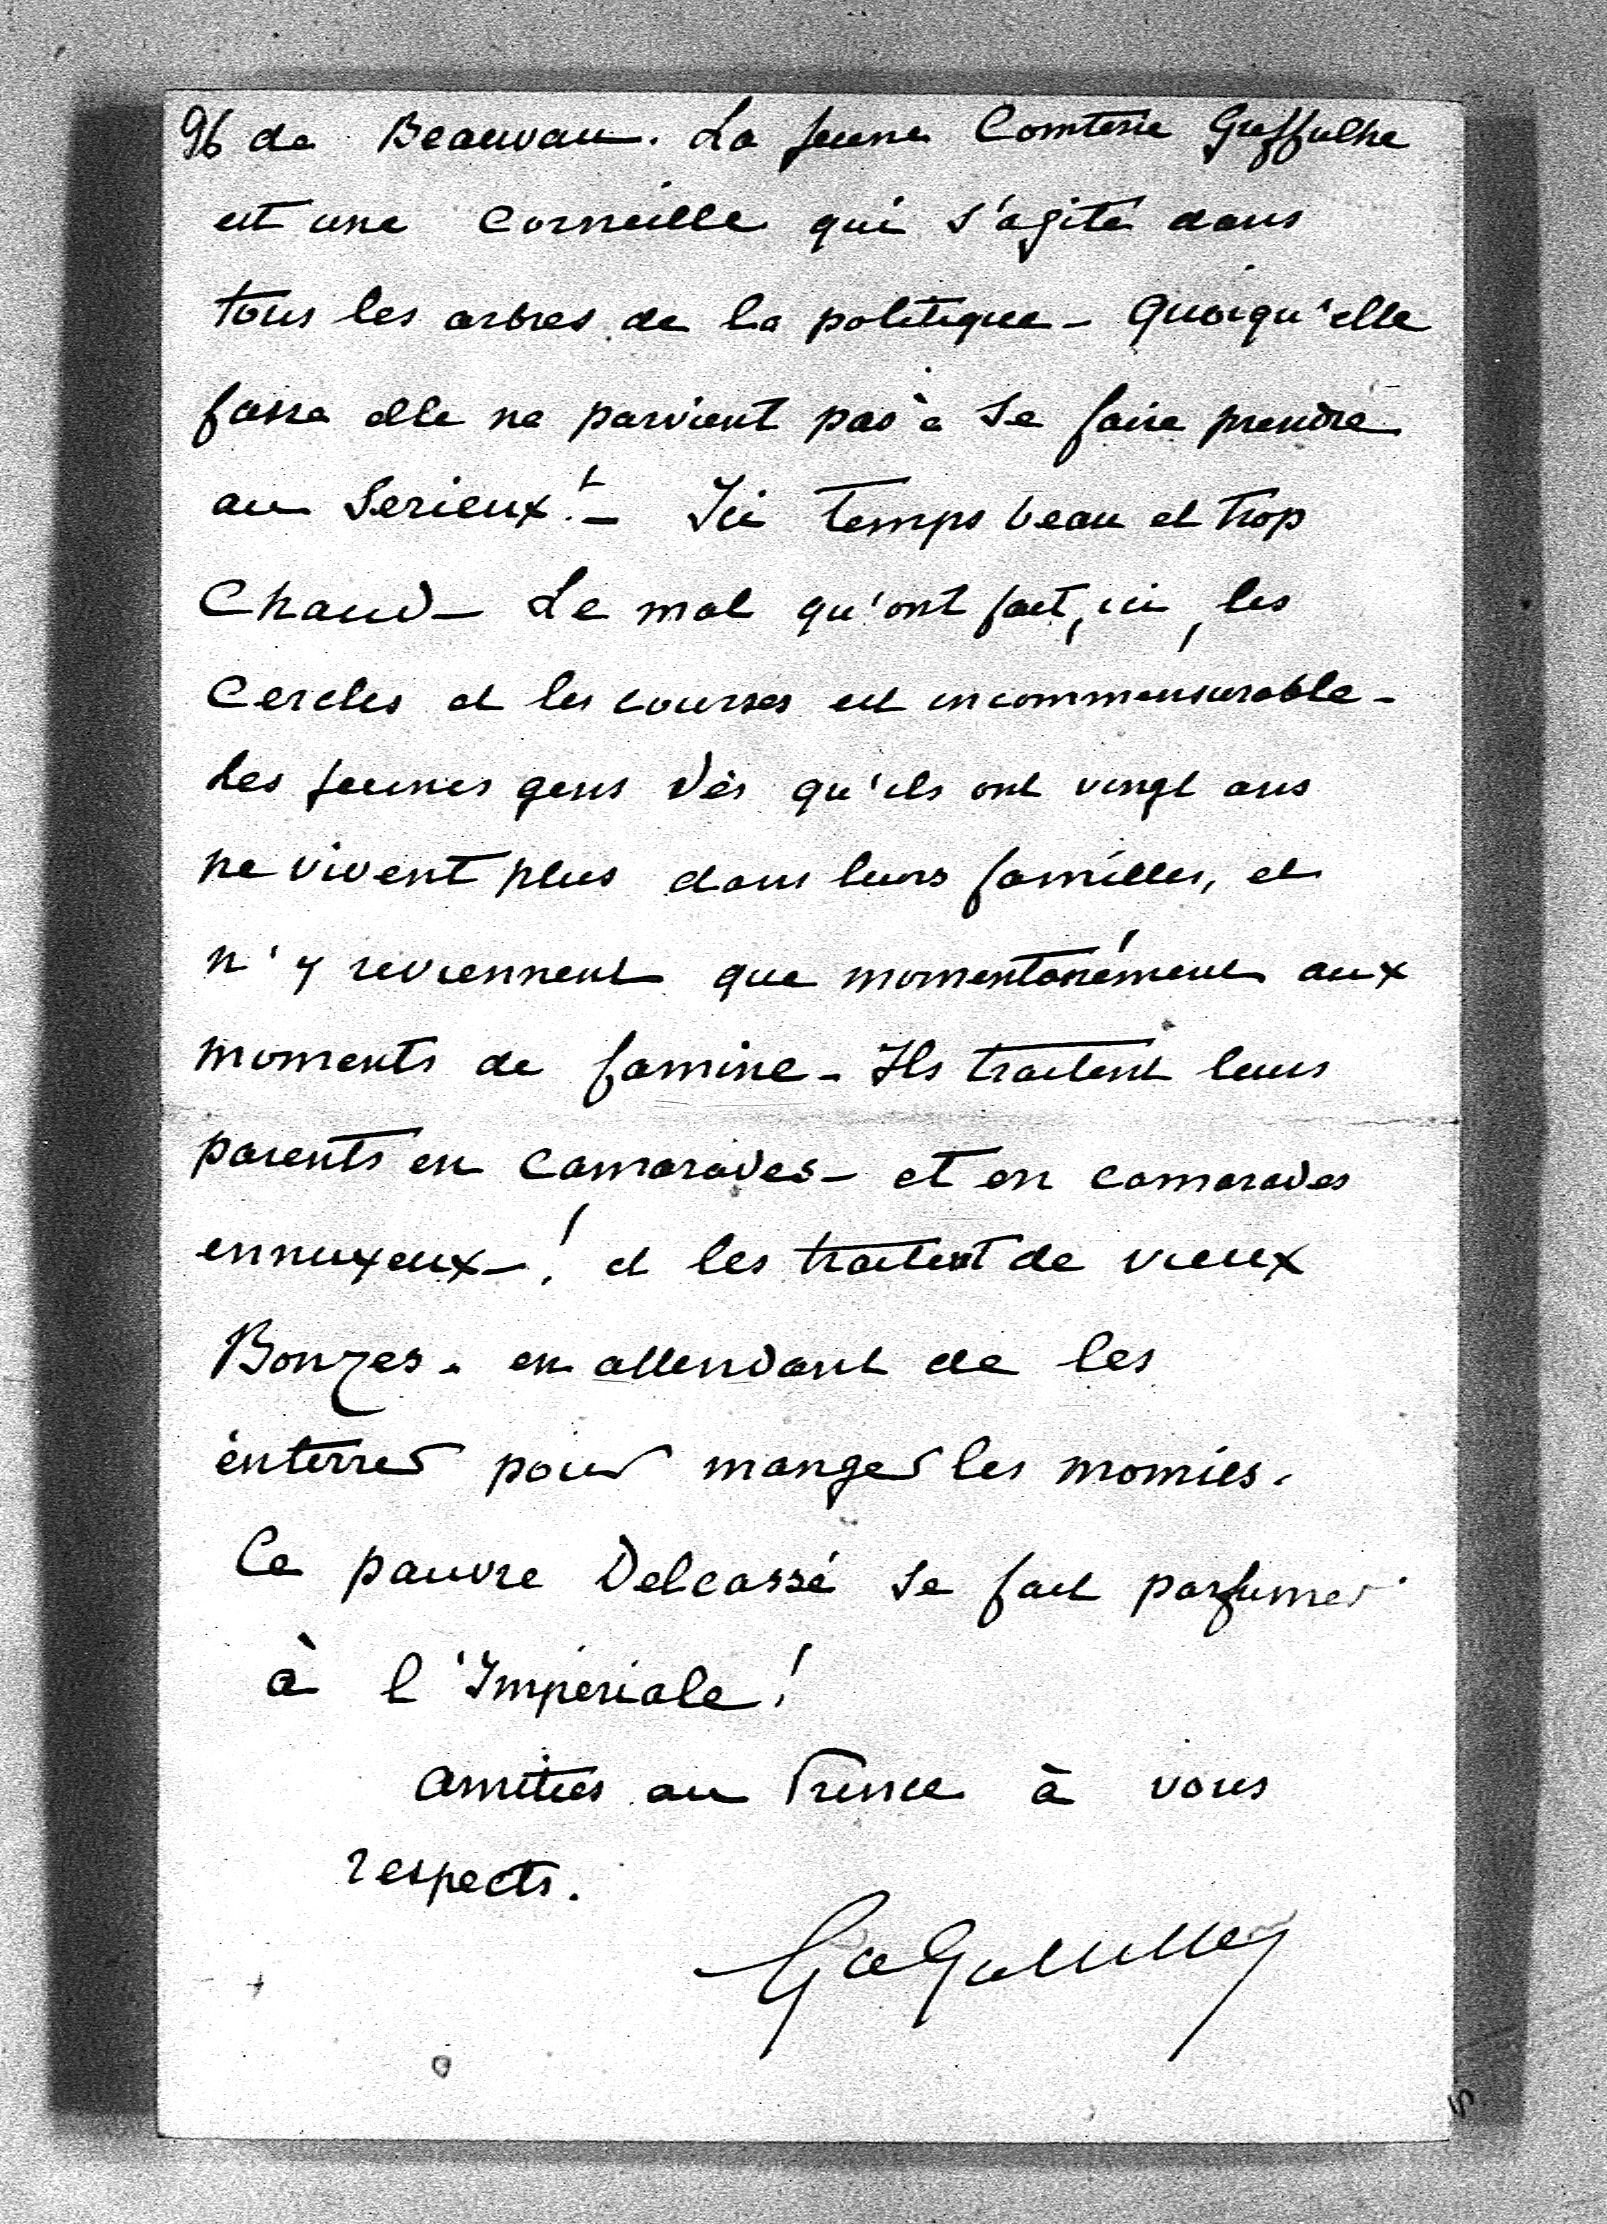 96 de Beauvau. La jeune Comtesse Greffulhe
est une Corneille qui s'agite dans
tous les arbres de la politique - Quoiqu'elle
fasse elle ne parvient pas à se faire prendre
au Serieux! - Ici temps beau et trop
Chaud - Le mal qu'ont fait, ici, les
Cercles et les courses est incommensurable -
Les jeunes gens dès qu'ils ont vingt ans
ne vivent plus dans leurs familles, et
n'y reviennent que momentanément aux
moments de famine - Ils traitent leurs
parents en camarades - et en camarades
ennuyeux - ! et les traitent de vieux
Bonzes. en attendant de les
enterrer pour manger les momies.
Ce pauvre Delcassé se fait parfumer
à l'Impériale!
Amitiés au Prince à vous
respects.